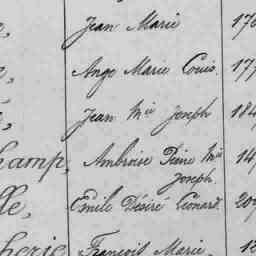 Jean Marie 176
Ange Marie Louis. 177
Jean Mie Joseph 184
hamp, Ambroise Pierre Mie 149
Joseph.
lle, Emile Désiré Léonard. 209
herie François Marie. 18